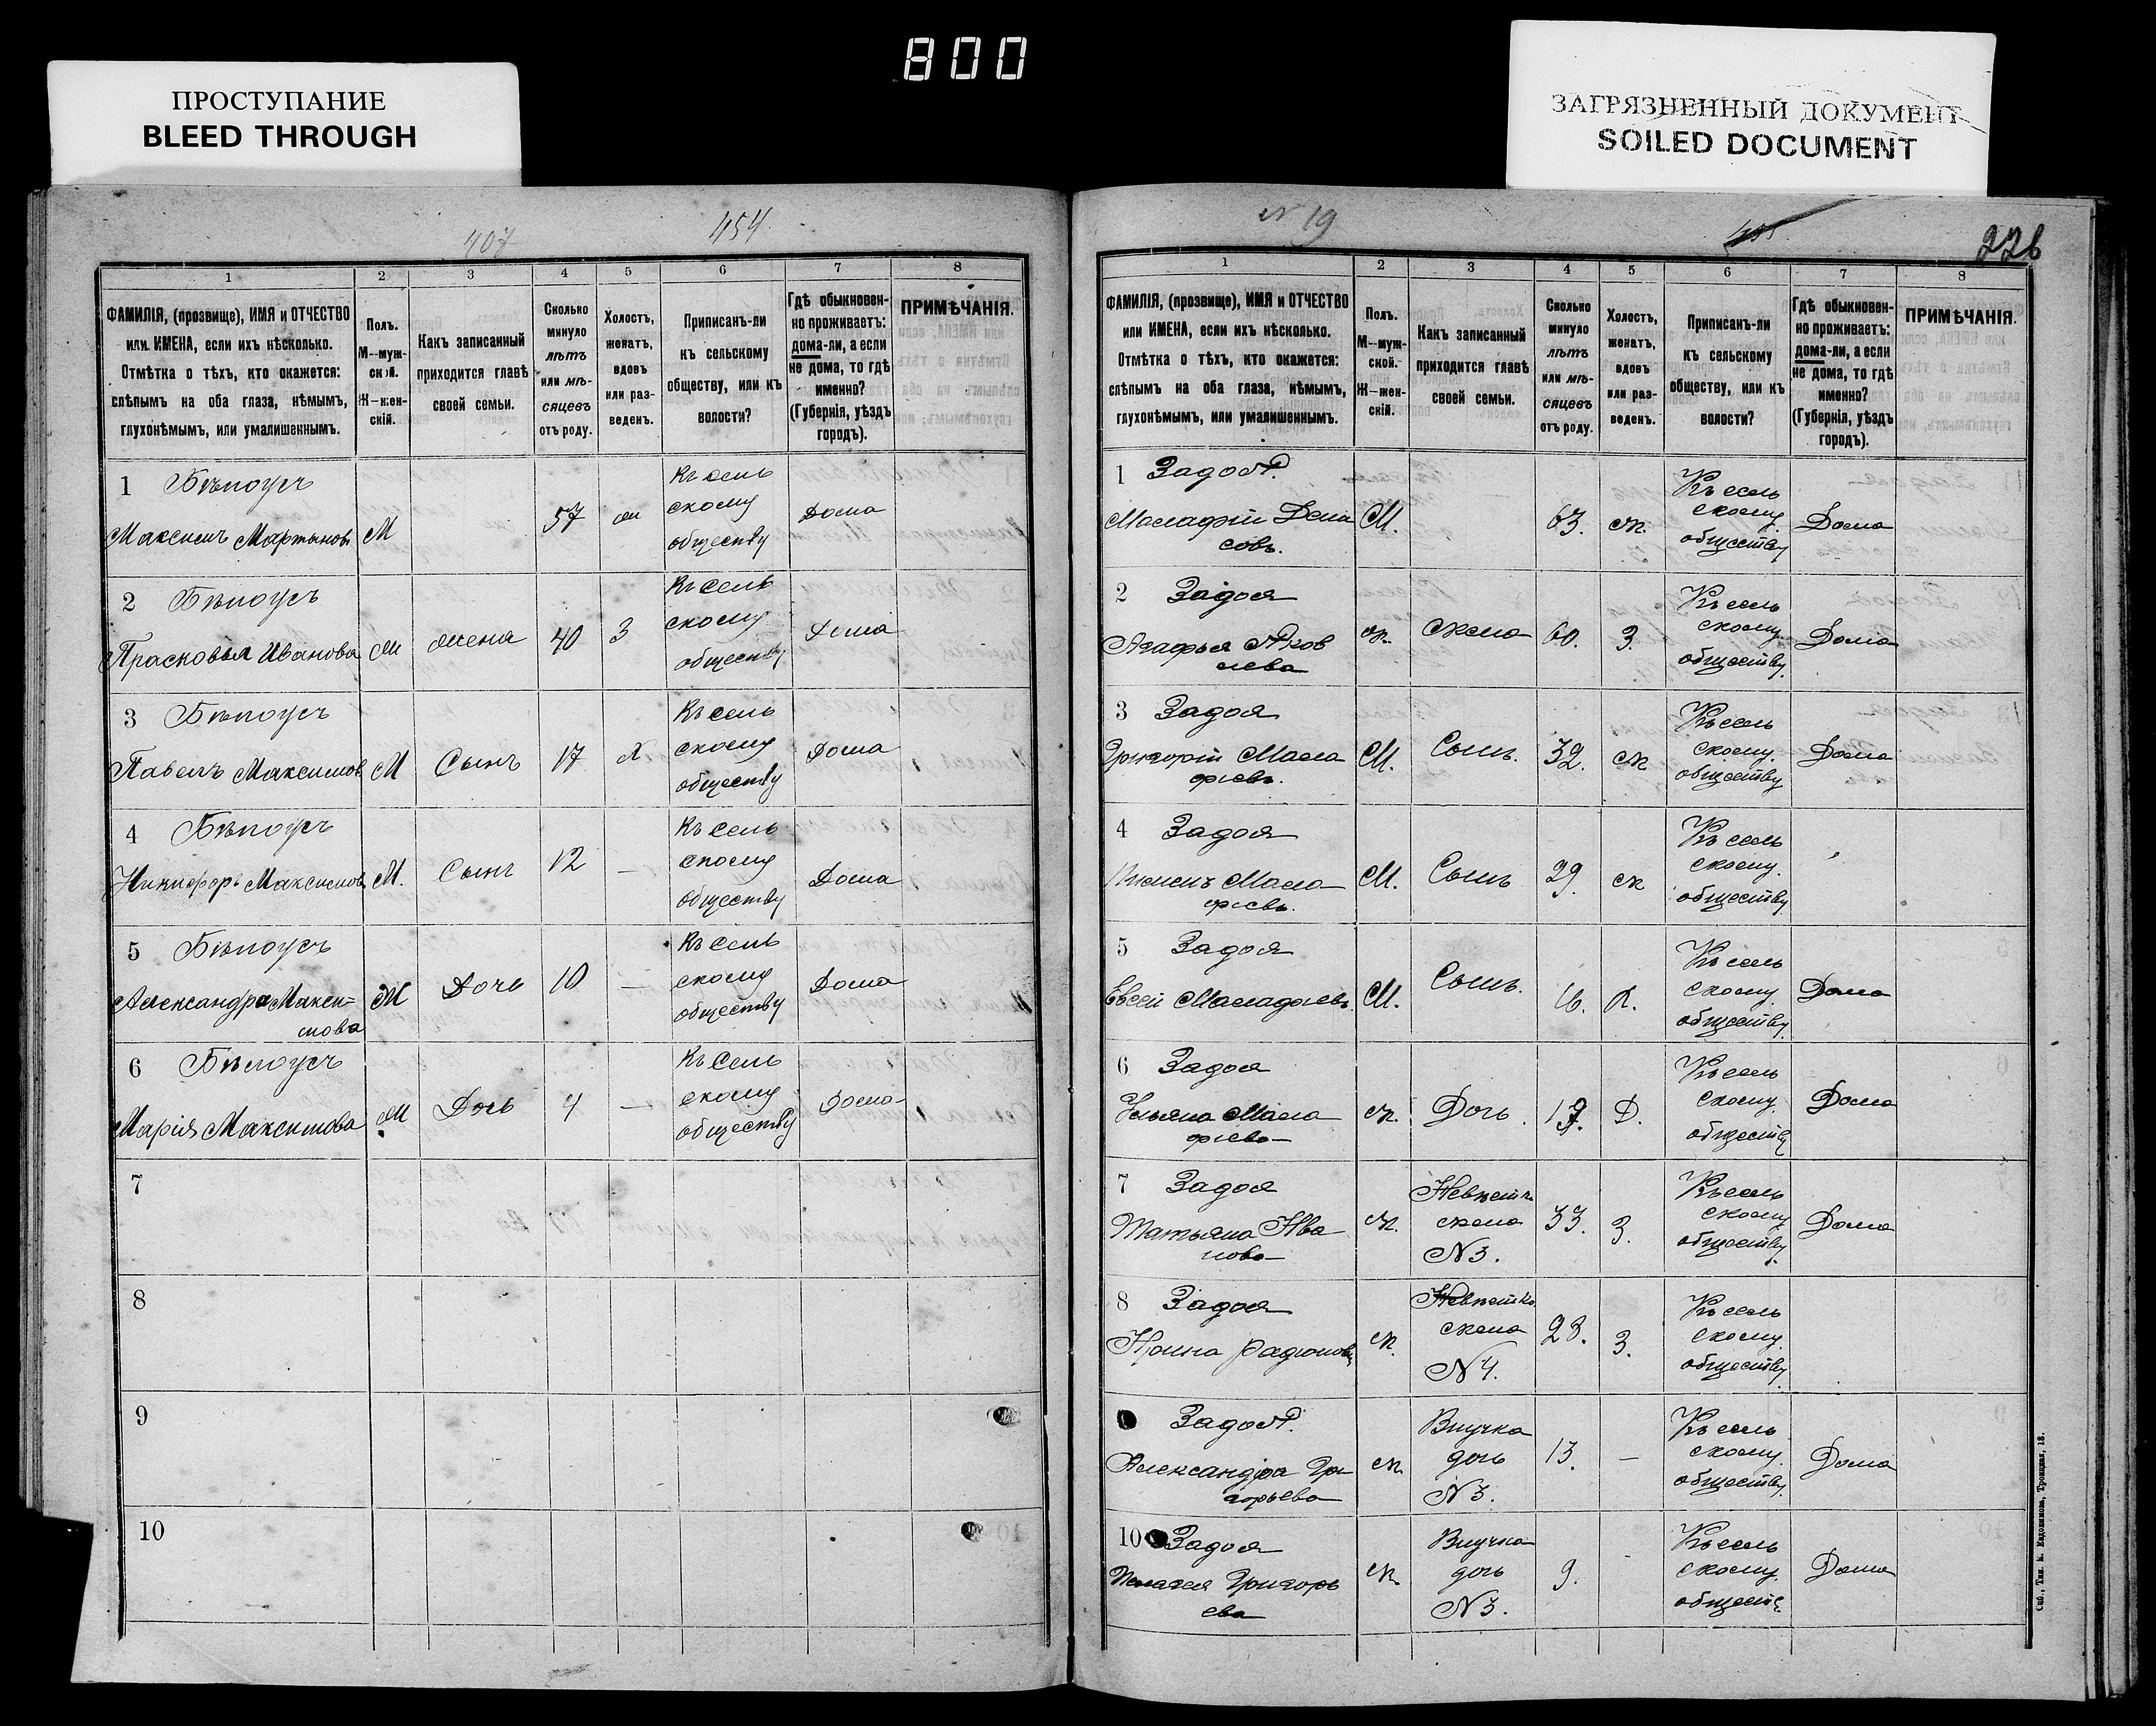 800
ПРОСТУПАНИЕ
BLEED THROUGH
ЗАГРЯЗНЕННЫЙ ДОКУМЕНТ
SOILED DOCUMENT
407
454
1 2 3 4 5 6 7 8
ФАМИЛІЯ, (прозвище), ИМЯ и ОТЧЕСТВО
или ИМЕНА, если ихъ нѣсколько.
Отмѣтка о тѣхъ, кто окажется:
слѣпымъ на оба глаза, нѣмымъ,
глухонѣмымъ, или умалишеннымъ.
Полъ.
М—муж-
ской.
Ж—жен-
скій.
Какъ записанный
приходится главѣ
своей семьи.
Сколько
минуло
лѣтъ
или мѣ-
сяцевъ
отъ роду.
Холостъ,
женатъ,
вдовъ
или раз-
веденъ.
Приписанъ-ли
къ сельскому
обществу, или къ
волости?
Гдѣ обыкновен-
но проживаетъ:
дома-ли, а если
не дома, то гдѣ
именно?
(Губернія, уѣздъ
городъ).
ПРИМѢЧАНІЯ.
1 Бѣлоусъ
Максимъ Мартыновъ
М
57
ж
Къ сель
скому
обществу
Дома
2 Бѣлоусъ
Прасковья Иванова
ж
жена
40
З
Къ сель
скому
обществу
Дома
3 Бѣлоусъ
Павелъ Максимов
М
Сынъ
17
Х
Къ сель
скому
обществу
Дома
4 Бѣлоусъ
Никифоръ Максимов
М.
Сынъ
12
—
Къ сель
скому
обществу
Дома
5 Бѣлоусъ
Александра Макси=
мова
Ж
Дочь
10
—
Къ сель
скому
обществу
Дома
6 Бѣлоусъ
Марія Максимова
Ж
Дочь
4
—
Къ сель
скому
обществу
Дома
7
8
9
10
N 19
226
1 2 3 4 5 6 7 8
ФАМИЛІЯ, (прозвище), ИМЯ и ОТЧЕСТВО
или ИМЕНА, если ихъ нѣсколько.
Отмѣтка о тѣхъ, кто окажется:
слѣпымъ на оба глаза, нѣмымъ,
глухонѣмымъ, или умалишеннымъ.
Полъ.
М—муж-
ской.
Ж—жен-
скій.
Какъ записанный
приходится главѣ
своей семьи.
Сколько
минуло
лѣтъ
или мѣ-
сяцевъ
отъ роду.
Холостъ,
женатъ,
вдовъ
или раз-
веденъ.
Приписанъ-ли
къ сельскому
обществу, или къ
волости?
Гдѣ обыкновен-
но проживаетъ:
дома-ли, а если
не дома, то гдѣ
именно?
(Губернія, уѣздъ
городъ).
ПРИМѢЧАНІЯ.
1 Задоя.
Малафій
М.
63.
ж.
Къ сель
скому
обществу
Дома
2 Задоя
Агафья Яков
лева
ж.
жена
60.
З.
Къ сель
скому
обществу
Дома
3 Задоя
Григорій Мала
фіевъ.
М.
Сынъ.
32.
ж
Къ сель
скому
обществу
Дома
4 Задоя
Мала
фіевъ.
М.
Сынъ
29.
ж
Къ сель
скому
обществу
5 Задоя
Евсей Малафіевъ.
М.
Сынъ.
Х.
Къ сель
скому
обществу
Дома
6 Задоя
Ульяна Мала
фіева
ж.
Дочь.
Д.
Къ сель
скому
обществу
Дома
7 Задоя
Татьяна Ива
нова
ж.
Невѣстк.
жена
N3.
33.
З.
Къ сель
скому
обществу
Дома
8 Задоя
Ирина Радіонов
ж.
Невѣстка
жена
N4.
28.
З.
Къ сель
скому
обществу
Задоя.
Александра Гри
горьева
ж
Внучка
дочь
N3.
13.
—
Къ сель
скому
обществу
Дома
10 Задоя
Пелагея Григорь
ева
ж.
Внучка
дочь
N3.
9.
Къ сель
скому
обществ
Дома
Спб., Тип. М. Евдокимова, Троицкая, 18.